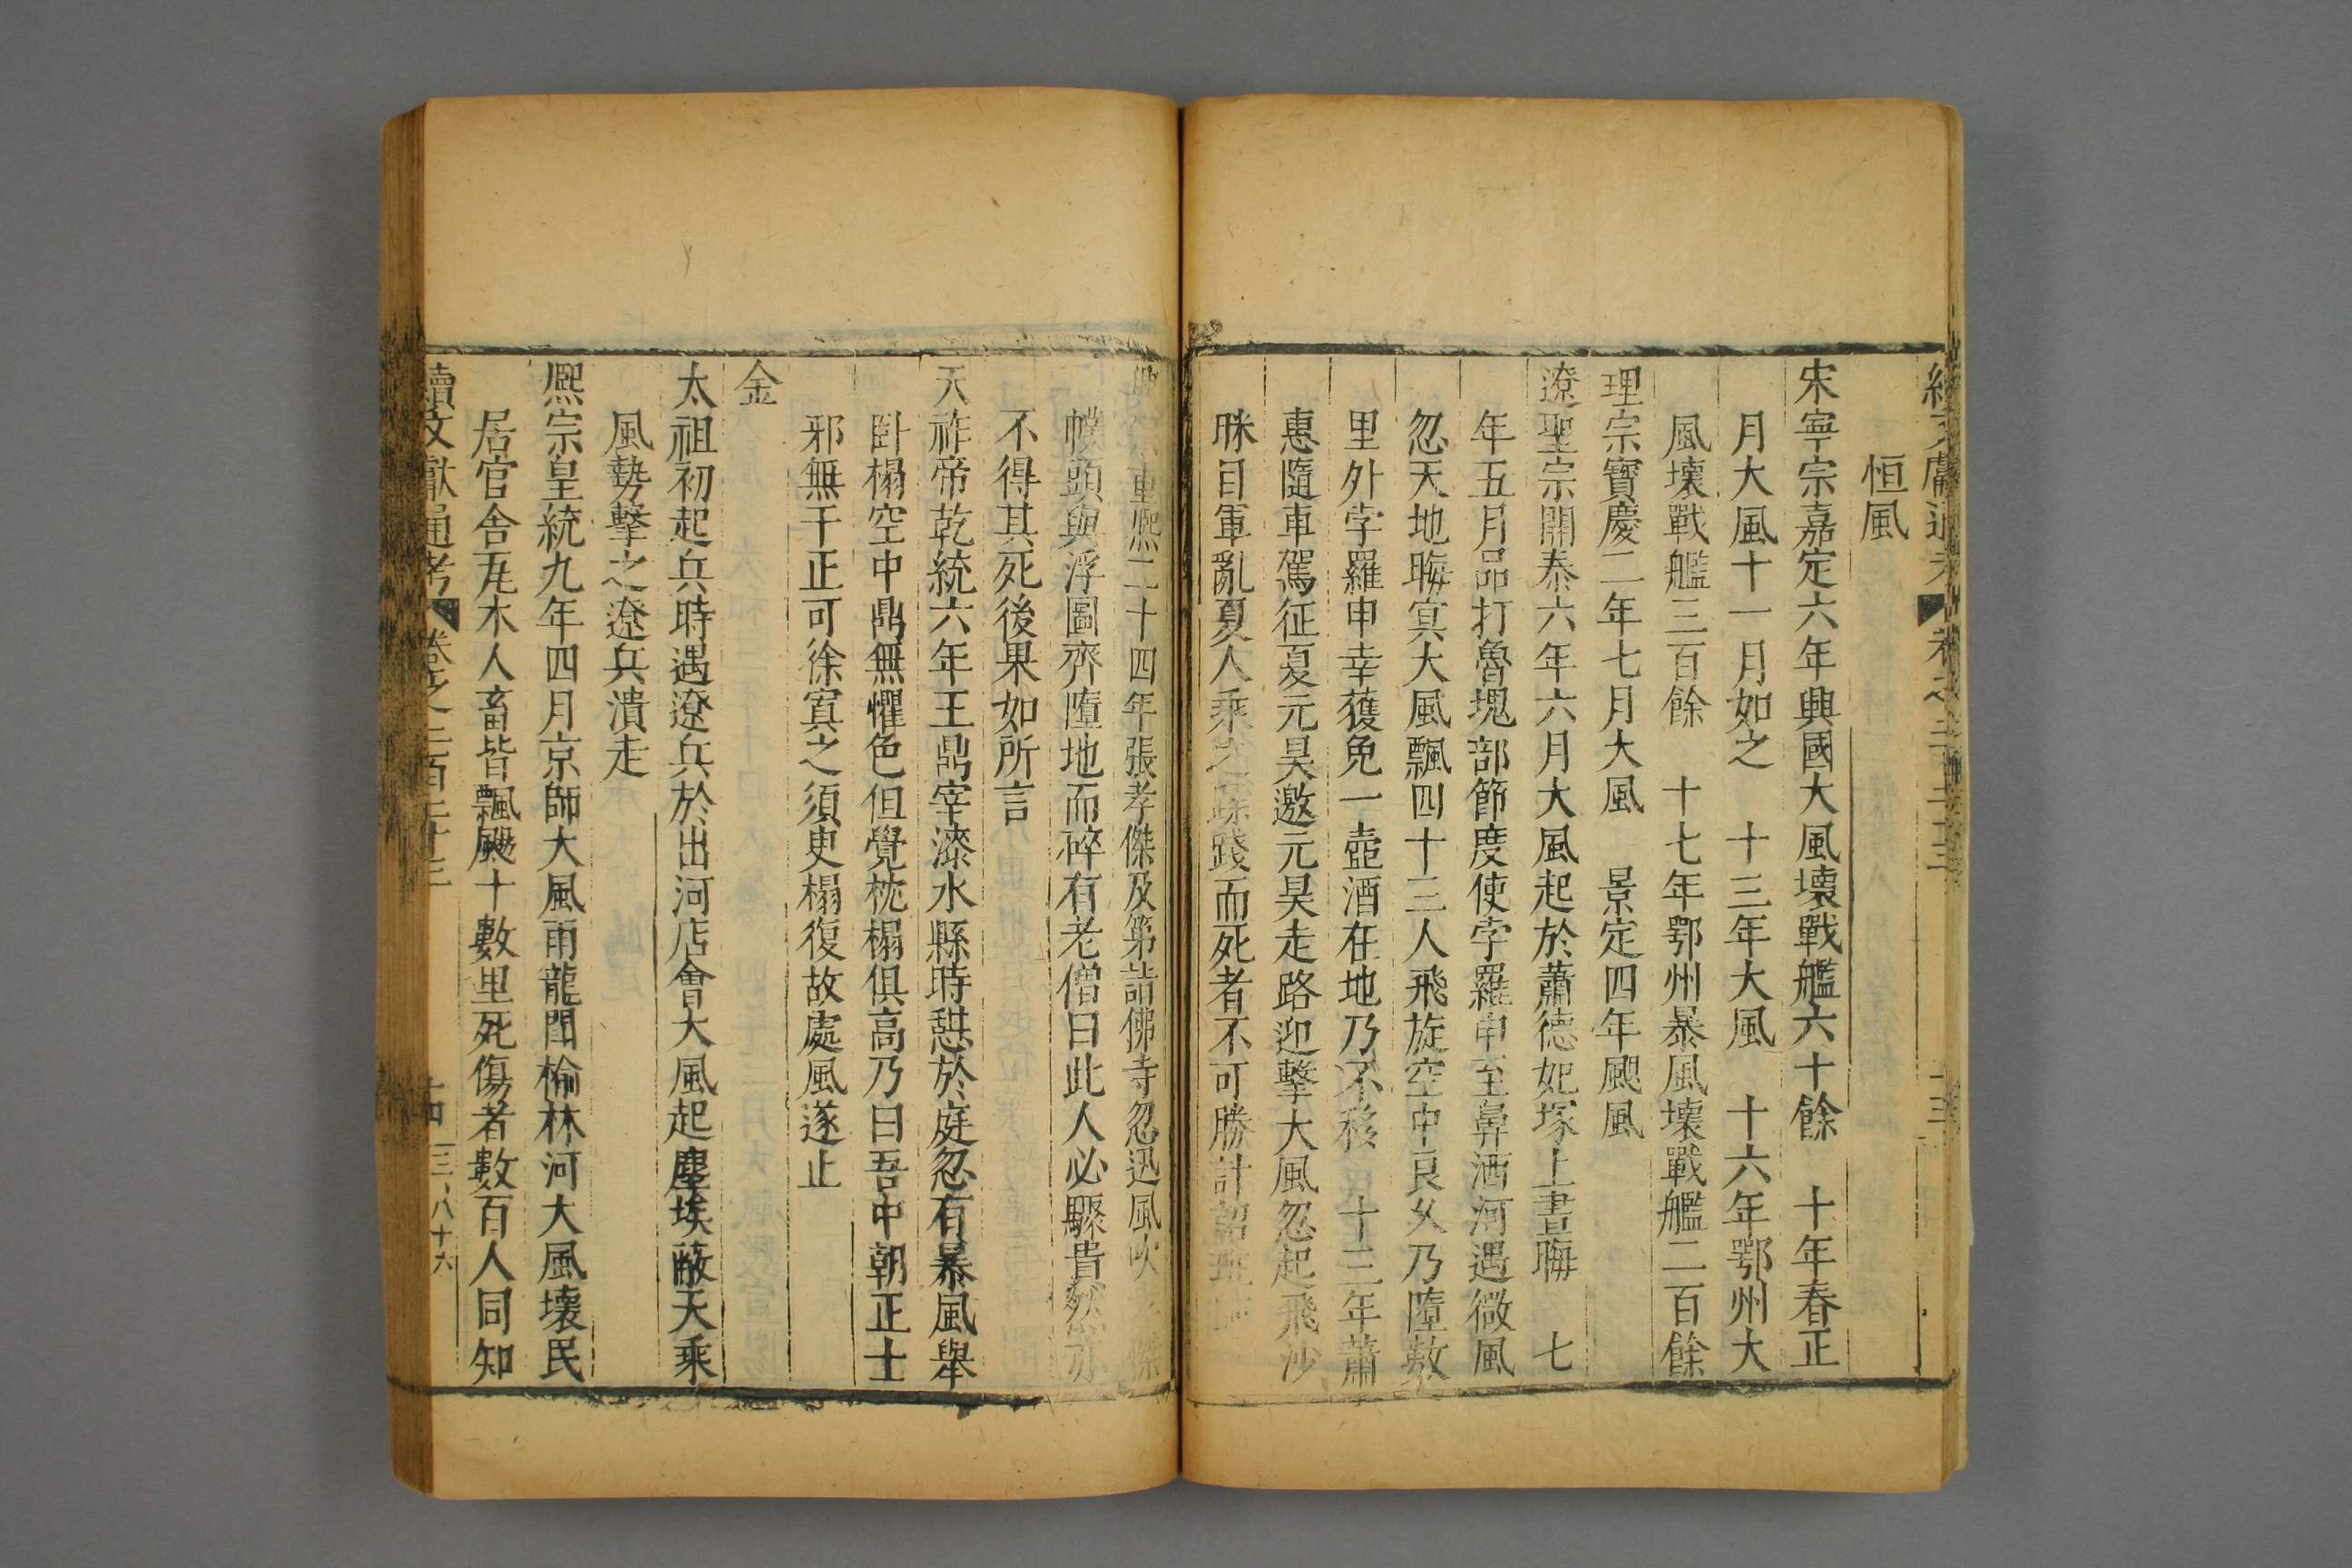 恒風
宋寧宗嘉定六年興國大風壞戰艦六十餘　十年春正
月大風十一月如之　十三年大風　十六年鄂州大
風壞戰艦三百餘　十七年鄂州暴風壞戰艦二百餘
理宗寶慶二年七月大風　景定四年颶風
遼聖宗開泰六年六月大風起於蕭德妃塚上晝晦　七
年五月品打魯瑰部節度使孛羅申至鼻洒河遇微風
忽天地晦冥大風飄四十三人飛旋空中良乆乃墮數
里外孛羅申幸獲免一壺酒在地乃不移　十三年蕭
惠隨車駕征夏元昊邀元昊走路迎擊大風忽起飛沙
眯目軍亂夏人乘之蹂踐而死者不可勝計詔班
重熈二十四年張孝傑及第詣佛寺忽迅風吹
幞頭與浮圖齊墮地而碎有老僧曰此人必驟貴然亦
不得其死後果如所言
天祚帝乾統六年王鼎宰漆水縣時憇於庭忽有暴風舉
卧榻空中鼎無懼色但覺枕榻俱高乃曰吾中朝正士
邪無干正可徐寘之須臾榻復故處風遂止
金
太祖初起兵時遇遼兵於出河店會大風起塵埃蔽天乘
風勢擊之遼兵潰走
熈宗皇統九年四月京師大風雨龍鬬榆林河大風壞民
居官舍瓦木人畜皆飄颺十數里死傷者數百人同知
續文獻通考　卷之二百二十三　十四　三八十六